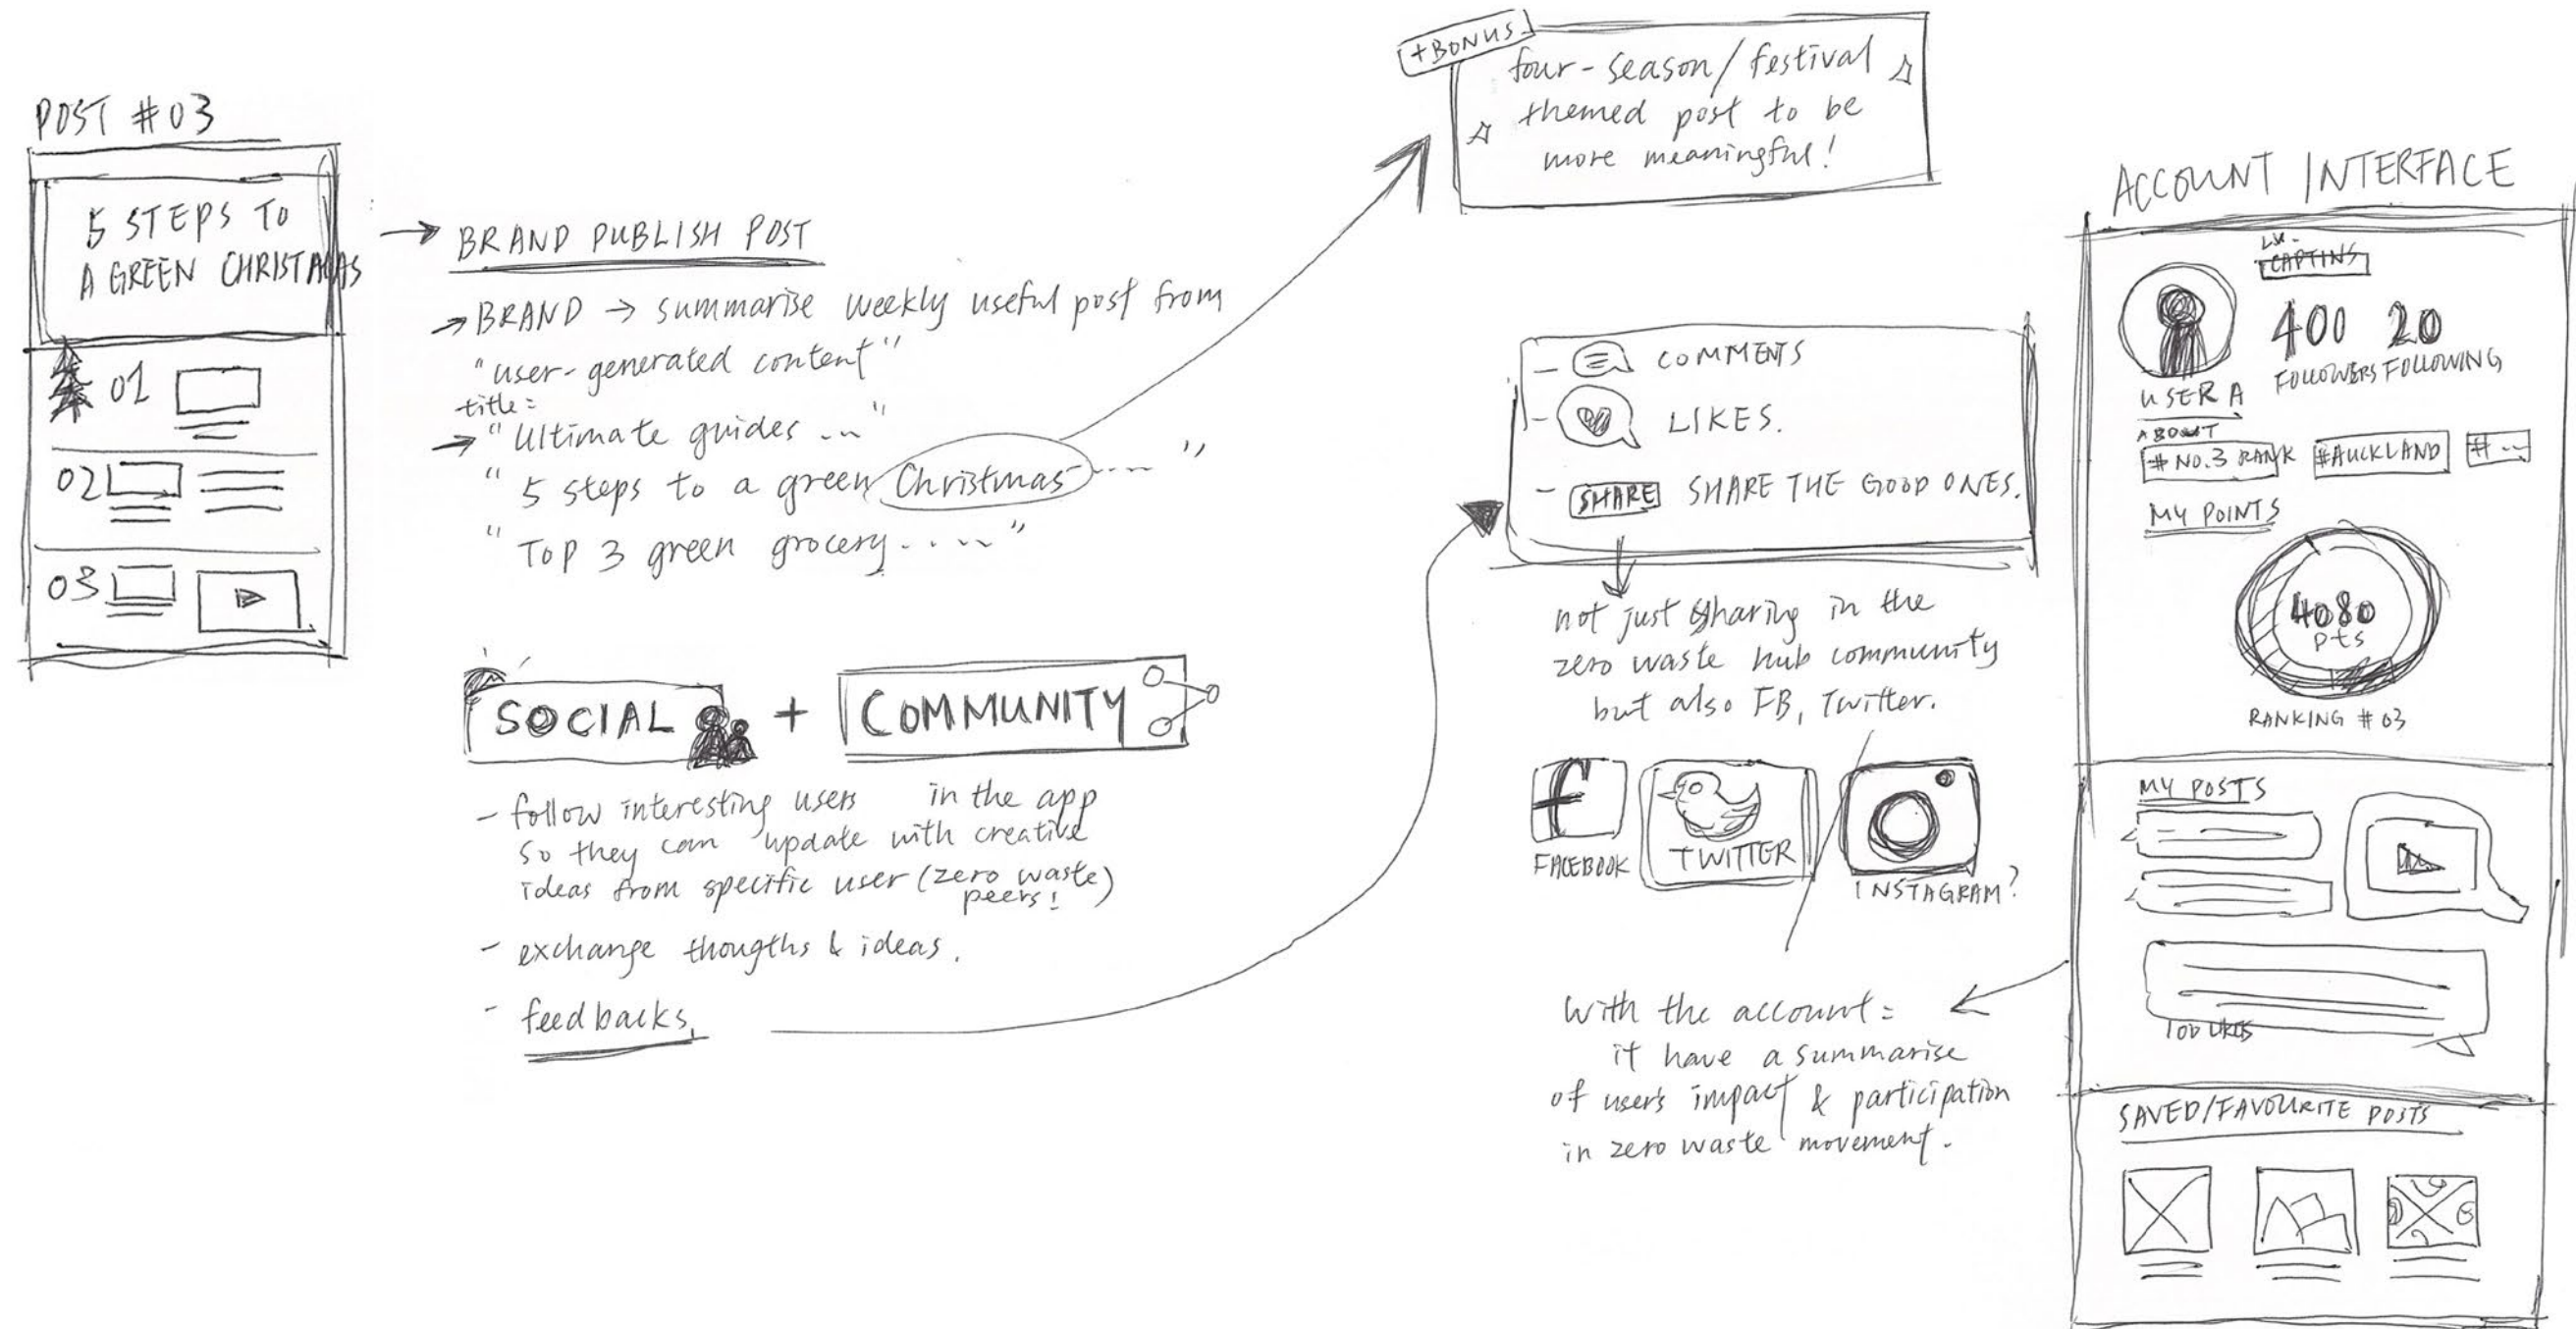 POST #03
5 STEPS TO
A GREEN CHRISTMAS
01
02
03
BRAND PUBLISH POST
→ BRAND → summarise weekly useful post from
"user-generated content"
title:
→ "Ultimate guides ..."
"5 steps to a green Christmas ...."
"TOP 3 green grocery....."
SOCIAL + COMMUNITY
- follow interesting users in the app
so they can update with creative
ideas from specific user (zero waste
peers!)
- exchange thougths & ideas.
- feedbacks.
+BONUS
four-season/festival
themed post to be
more meaningful!
- COMMENTS
- LIKES.
- SHARE SHARE THE GOOD ONES.
not just sharing in the
zero waste hub community
but also FB, Twitter.
FACEBOOK
TWITTER
INSTAGRAM?
With the account:
it have a summarise
of users impact & participation
in zero waste movement.
ACCOUNT INTERFACE
400 20
FOLLOWERS FOLLOWING
USER A
ABOUT
#NO.3 RANK #AUCKLAND # ...
MY POINTS
4080
pts
RANKING #03
MY POSTS
100 LIKES
SAVED/FAVOURITE POSTS